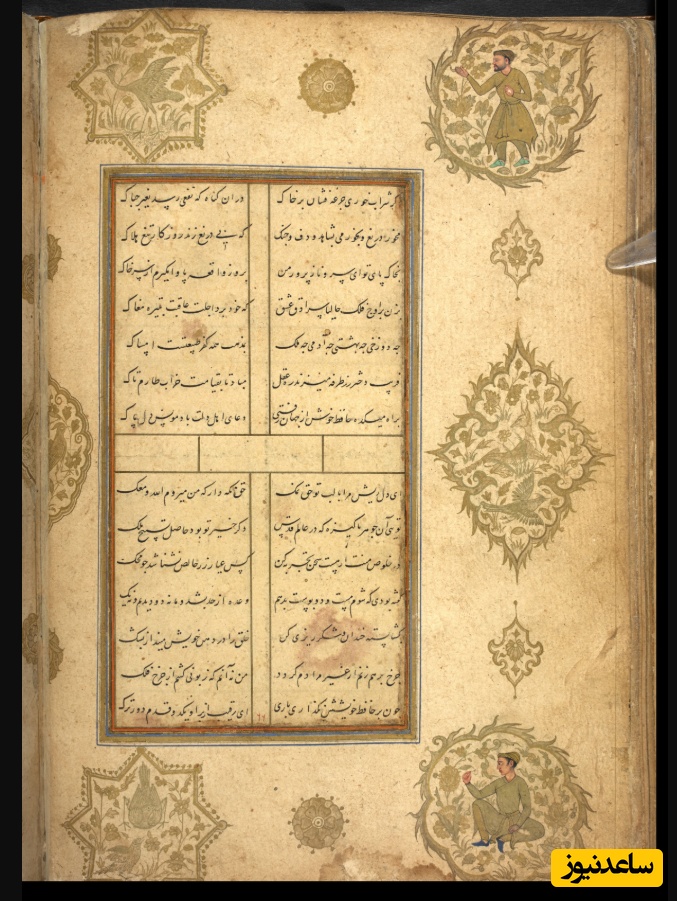 اگر شراب خوری جرعه فشان بر خاک دران گناه که نفعی رسد بغیر چه باک
مخور دریغ و بخور می بشاهد و دف و چنگ که بی دریغ زند روزگار تیغ هلاک
بخاک پای تو ای سرو ناز پرور من بروز واقعه پا وامگیرم از سر خاک
بزن بر اوج فلک حالیا سرادق عشق که خود برد اجلت عاقبت بتیره مغاک
چه دوزخی چه بهشتی چه آدمی چه ملک بمذهب همه کفر امساک
فریب دختر رز طرفه میزند ره عقل مباد تا بقیامت خراب طارم تاک
براه میکده حافظ خوش از جهان رفتی دعای اهل دلت باد مونس دل پاک
ای دل ریش مرا با لب تو حق نمک حق نگه دار که من میروم الله معک
تویی آن جوهر پاکیزه که در عالم قدس ذکر خیر تو بود حاصل تسبیح ملک
در خلوص منت ار هست تجربه کن کس عیار زر خالص نشناسد چو محک
گفته بودی که شوم مست و دو بوست بدهم وعده از حد بشد و ما نه دو دیدیم و نه یک
بگشا پسته خندان و شکر ریزی کن خلق را در دهن خویش مینداز بشک
چرخ بر هم زنم ار غیر مرادم گردد من نه آنم که زبونی کشم از چرخ فلک
چون بر حافظ خویشش نگذاری باری ای رقیب از بر او یکدو قدم دورترک
ساعدنیوز